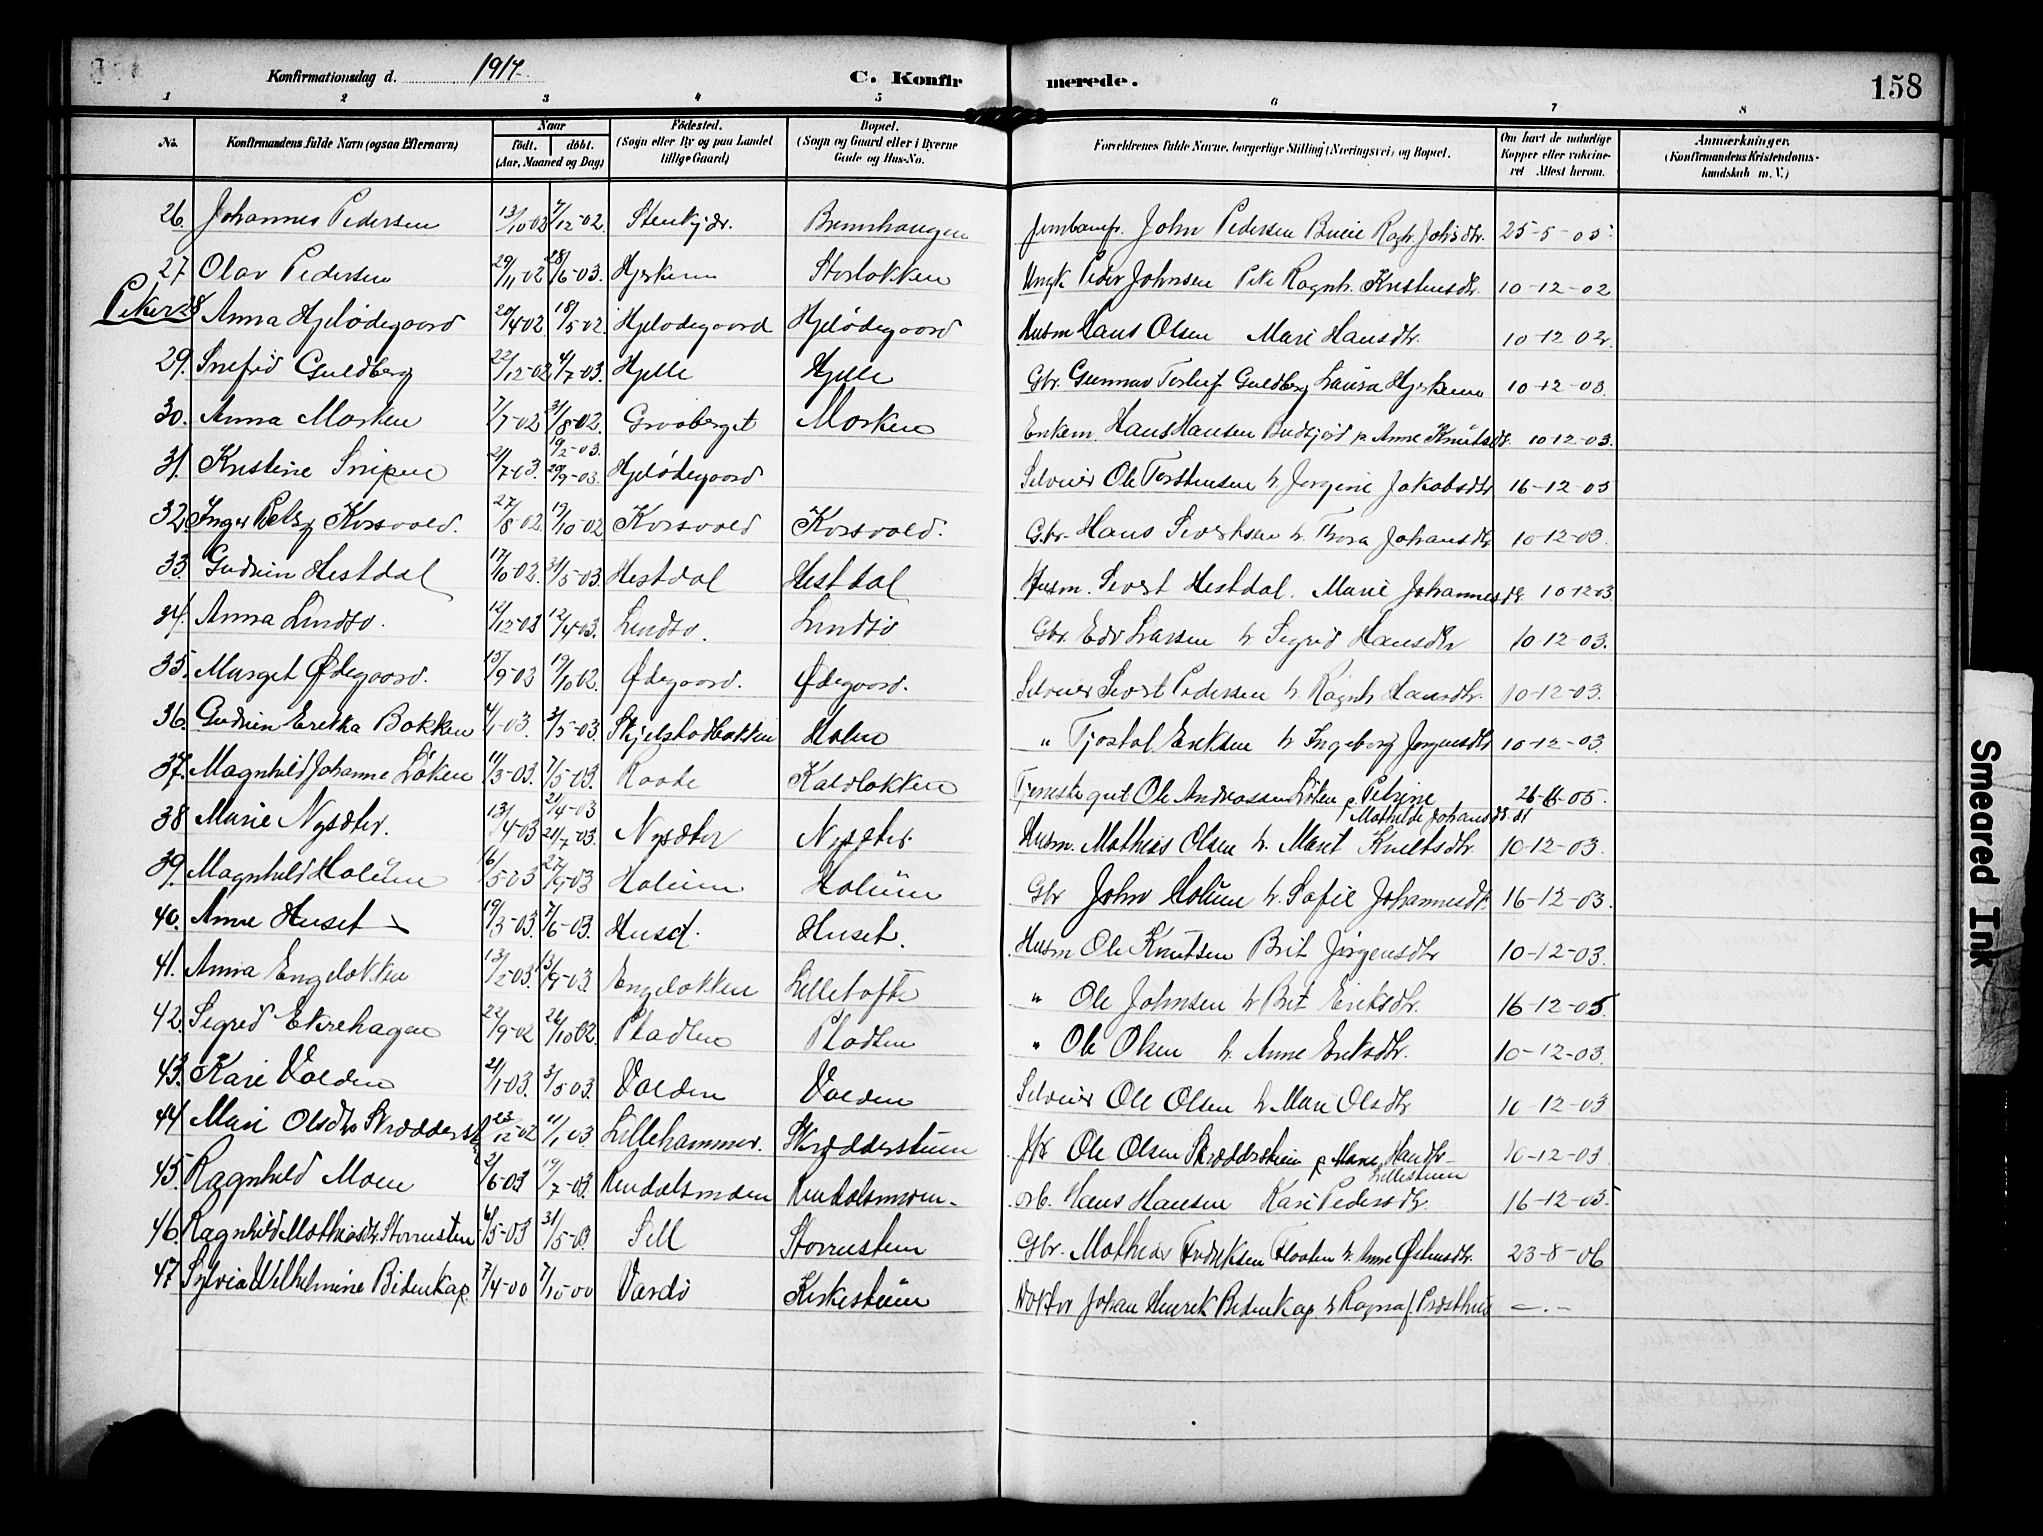 Konfirmationsdag d. 1917. C. Konfirmerede. 158
1 2 3 4 5 6 7 8
No. Konfirmandens fulde Navn (ogsaa Efternavn) Naar født. døbt. (Aar, Maaned og Dag) Fødested. (Sogn eller By og paa Landet tillige Gaard) Bopæl. (Sogn og Gaard eller i Byerne Gade og Hus-No. Forældrenes fulde Navne, borgerlige Stilling (Næringsvei) og Bopæl. Om havt de naturlige Kopper eller vakcineret Attest herom. Anmærkninger. (Konfirmandens Kristendomskundskab m. V.)
26. Johannes Pedersen 13/10-02 7/12-02. John Pedersen 25-5-05.
27. Olav Pedersen 29/11-02 28/6-03. Hjerkinn Storløkken Peder Johnsen Ragnh. Kristensdtr. 10-12-02
Piker 28 Anna Hjelødegaard 20/4 02 18/5 02 Hjelødegaard Hjelødegaard Husm Hans Olsen Mari Hansdtr. 10-12-02.
29. Snefrid Guldberg 22/12-02 4/7-03. Hjelle Hjelle Gbr. Gunnar Guldberg Laura Hjerkinn 10-12-03.
30. Anna Morken 7/7-02 31/8-02. Graaberget Morken Enkem. Hans Hansen Anne Knutsdtr. 10-12-03.
31. Kristine Snipen 21/7-03. 19/2-03. 20/9-03. Hjelødegaard Selveier Ole Torstensen h. Jørgine Jakobsdtr 16-12-03
32. Inger Betsy Korsvold. 27/8-02 19/10-02 Korsvold Korsvold. Gbr. Hans Sivertsen h. Thora Johansdtr 10-12-03.
33. Gudrun Hestdal 17/10-02. 31/5-03. Hestdal Hestdal Husm. Sivert Hestdal. Marie Johannesdtr. 10-12-03
34. Anna Lindsø. 12/12-02 12/4-03. Lindsø. Lindsø Gbr. Edv Larsen h Sigrid Hansdtr 10-12-03.
35. Marget Ødegaard. 15/9-02 19/10 02. Ødegaard. Ødegaard. Selveier Sivert Pedersen h. Ragnh. Hansdtr. 10-12-03.
36. Gudrun Erikka Bakken 4/1-03. 31/5-03. Skjelstadbakken Holen " Tjostol Eriksen h Ingeborg Jørgensdtr 10-12-03.
37. Magnhild Johanne Løken 11/3-03. 7/5-03. Raade Kaldløkken Tjenestegut Ole Andreassen Løken p. Petrine Mathilde Johansdtr. 26-6-05.
38 Marie Nysæter. 13/4-03 21/4-03 21/7-03. Nysæter Nysæter. Husm. Mathias Olsen h. Marit Knutsdtr. 10-12-03.
39. Magnhild Holum 16/5 03 27/9-03 Holum Holum Gbr John Holum h. Sofie Johannesdtr. 16-12-03.
40. Anne Huset 19/3-03. 7/6-03. Huset. Huset. Husm Ole Knutsen Brit Jørgensdtr 10-12-03.
41. Anna Engeløkken 13/2-03. 13/9-03 Engeløkken Lilletofte " Ole Johnsen h Brit Eriksdtr. 16-12-05
42. Sigrid Ekrehagen 22/9-02 26/10 02. Pladsen Pladsen " Ole Olsen h. Anne Eriksdtr. 10-12-03.
43. Kari Volden 21/1-03. 31/5 03. Volden Volden Selveier Ole Olsen h Mari Olsdtr 10-12-03
44. Mari Olsdtr Skrædderst. 23/12-02 11/1 03. Lillehammer. Skrædderstuen Ole Olsen Skrædderstuen p Marie Hansdtr Lillestuen 10-12-03
45. Ragnhild Moen 21/6-03 19/7-03. Arb. Hans Hansen Kari Pedersdtr. 16-12-05.
46. Ragnhild Mathiasdtr. Storrusten 6/5-03 31/5-03. Sell Storrusten Gbr. Mathias Fredriksen Floaten h. Anne Østensdtr. 23-8-06
47 Sylvia Wilhelmine Bidenkap. 7/4-00 7/10-00 Vardø Kirkestuen Doktor Johan Henrik Bidenkap. h Ragna f. Præsthus —.—
Smeared Ink